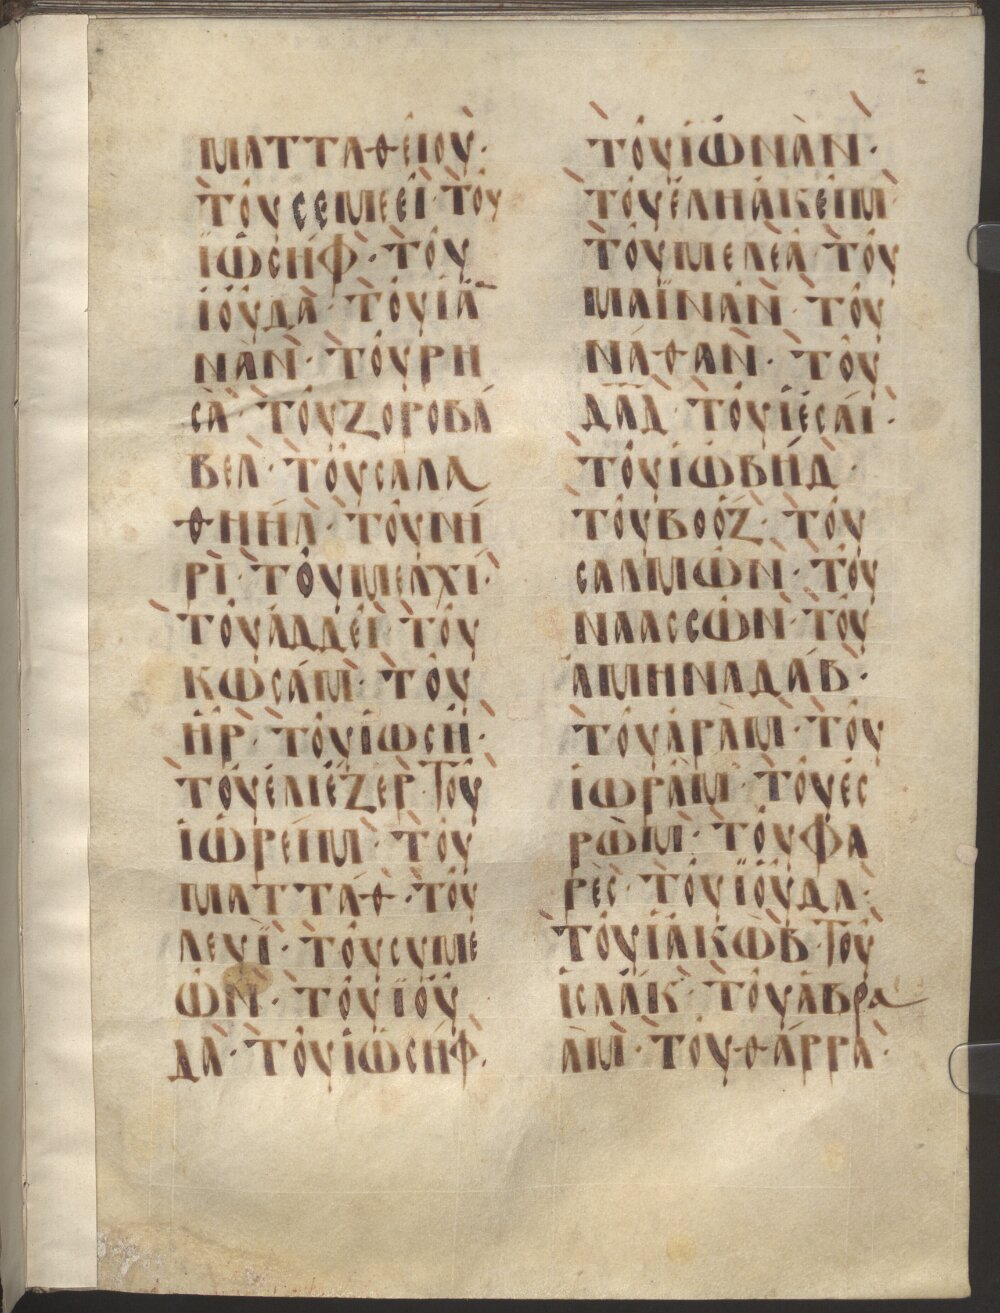 ΜΑΤΤΑΘΕΙΟΥ·
ΤΟΥ ΣΕΜΕΕΙ· ΤΟΥ
ΙΩΣΗΦ· ΤΟΥ
ΙΟΥΔΑ· ΤΟΥ ΙΑ
ΝΑΝ· ΤΟΥ ΡΗ
ΣΑ· ΤΟΥ ΖΟΡΟΒΑ
ΒΕΛ· ΤΟΥ ΣΑΛΑ
ΘΗΗΛ· ΤΟΥ ΝΗ
ΡΙ· ΤΟΥ ΜΕΛΧΙ·
ΤΟΥ ΑΔΔΕΙ· ΤΟΥ
ΚΩΣΑΜ· ΤΟΥ
ΗΡ· ΤΟΥ ΙΩΣΗ·
ΤΟΥ ΕΛΙΕΖΕΡ· ΤΟΥ
ΙΩΡΕΙΜ· ΤΟΥ
ΜΑΤΤΑΘ· ΤΟΥ
ΛΕΥΪ· ΤΟΥ ΣΥΜΕ
ΩΝ· ΤΟΥ ΪΟΥ
ΔΑ· ΤΟΥ ΙΩΣΗΦ·
ΤΟΥ ΙΩΝΑΝ·
ΤΟΥ ΕΛΗΑΚΕΙΜ·
ΤΟΥ ΜΕΛΕΑ· ΤΟΥ
ΜΑΪΝΑΝ· ΤΟΥ
ΝΑΘΑΝ· ΤΟΥ
ΔΑΔ· ΤΟΥ ΙΕΣΑΙ·
ΤΟΥ ΙΩΒΗΔ·
ΤΟΥ ΒΟΟΖ· ΤΟΥ
ΣΑΛΜΩΝ· ΤΟΥ
ΝΑΑΣΣΩΝ· ΤΟΥ
ΑΜΗΝΑΔΑΒ·
ΤΟΥ ΑΡΑΜ· ΤΟΥ
ΙΩΡΑΜ· ΤΟΥ ΕΣ
ΡΩΜ· ΤΟΥ ΦΑ
ΡΕΣ· ΤΟΥ ΪΟΥΔΑ·
ΤΟΥ ΙΑΚΩΒ· ΤΟΥ
ΙΣΑΑΚ· ΤΟΥ ΑΒΡΑ
ΑΜ· ΤΟΥ ΘΑΡΡΑ·